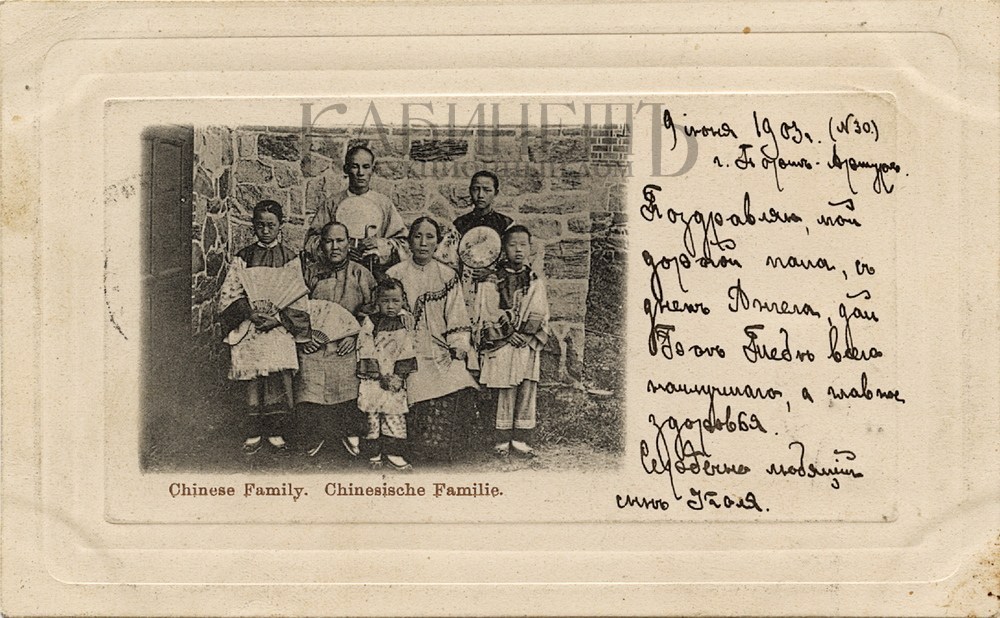 КАБИНЕТЪ
Chinese Family. Chinesische Familie.
9 июня 1903 г. (№30.)
г. Портъ-Артуръ.
Поздравляю, мой
дорогой папа, съ
днемъ Ангела, дай
Богъ Тебѣ всего
наилучшаго, а главное
здоровья.
Сердечно любящій
сынъ Коля.